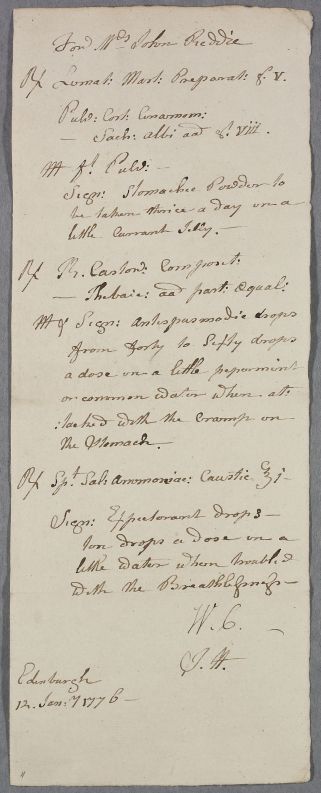 For Mrs John Reddie
Rx Limat: Mart: Preparat: g. v.
Pulv: Cort: Cinamom:
— Sach: Albi aa g. viii.
M ft. Pulv: —
Sign: Stomachic Powder to
be taken thrice a day in a
little Currant Jelly. —
Rx Tr. Castor: Composit:
— Thebaic: aa part: Æqual:
M & Sign: Antispasmodic drops
from forty to fifty drops
a dose in a little pepermint
or common water when at:
:tacked with the Cramp in
the Stomach.
Rx Spt. Sal: Ammoniac: Caustic ʒi —
Sign: Expectorant drops —
ten drops a dose in a
little water when troubled
with the Breathlessness —
W. C. —
J. H.
Edinburgh
12. Jany 1776 —